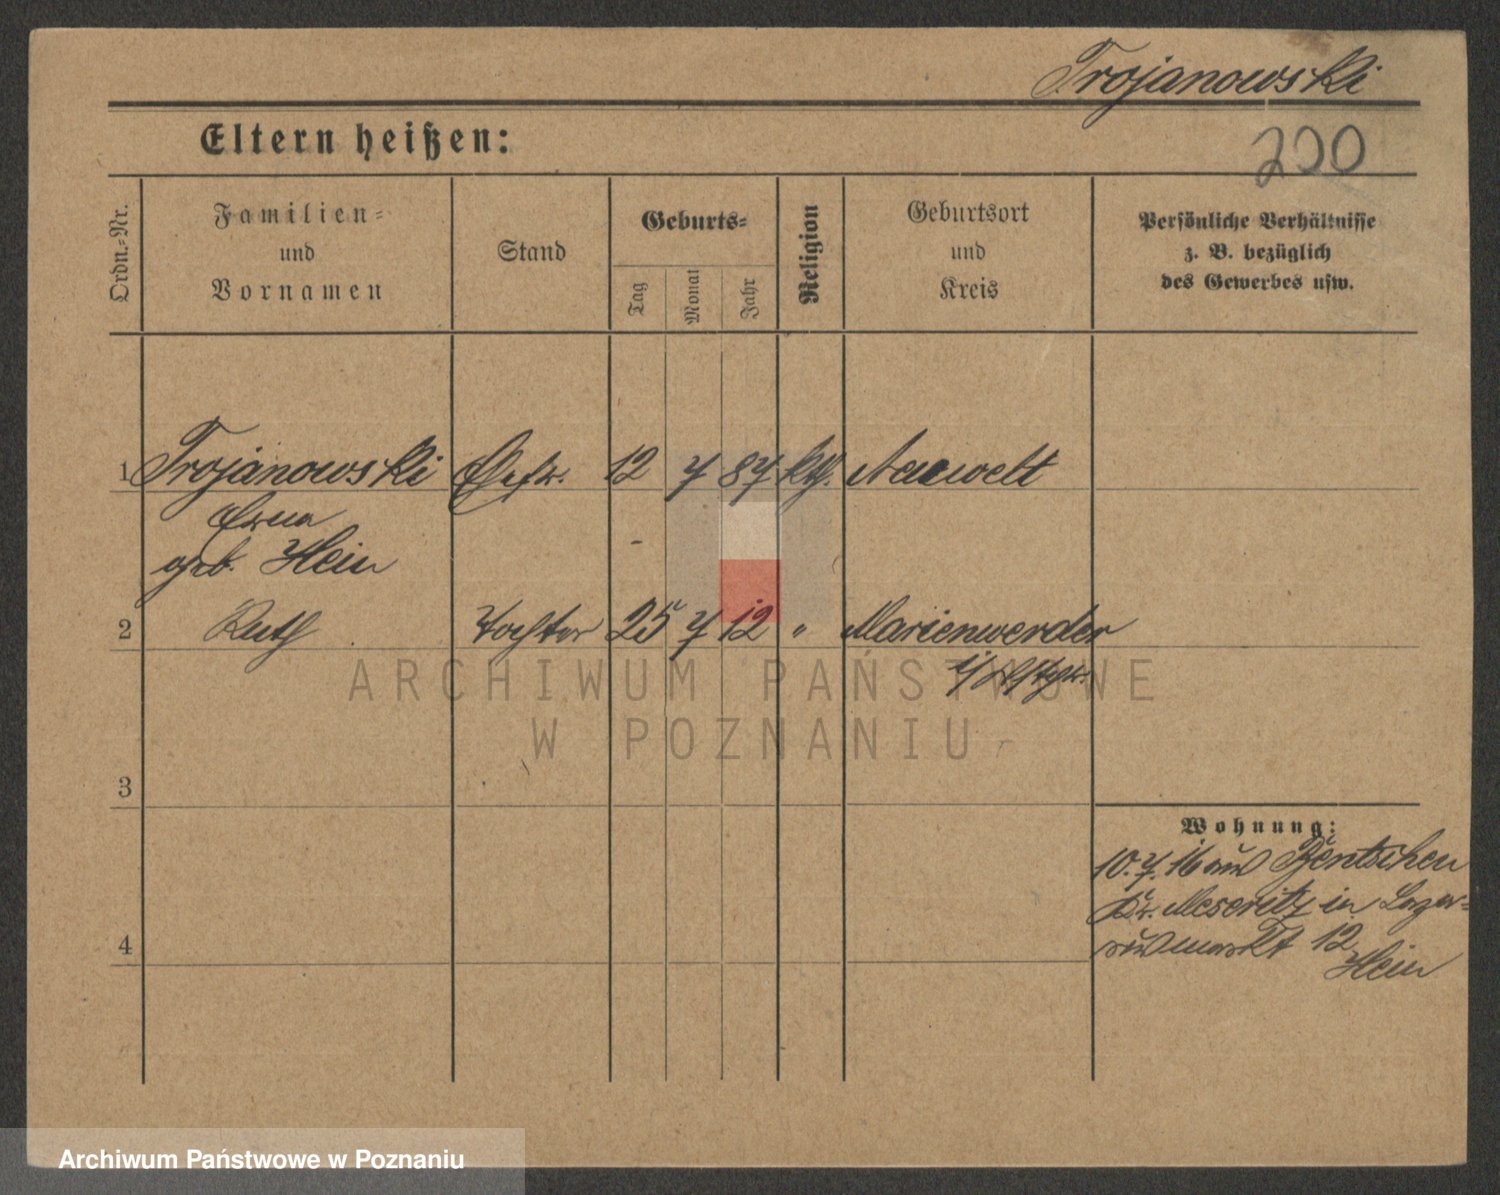 Trojanowski
Eltern heißen:
200
Ordn.-Nr.
Familien-
und
Vornamen
Stand
Geburts-
Tag
Monat
Jahr
Religion
Geburtsort
und
Kreis
Persönliche Verhältnisse
z. B. bezüglich
des Gewerbes usw.
1 Trojanowski Ehefr. 12 7 87 kth. Neuwelt
Erna
geb. Hein
2 Ruth Tochter 25 7 12 " Marienwerder
i/Wstpr.
ARCHIWUM PAŃSTWOWE
W POZNANIU
3
Wohnung:
10.7.16 aus Bentschen
Kr. Meseritz in
12
4
Hein
Archiwum Państwowe w Poznaniu